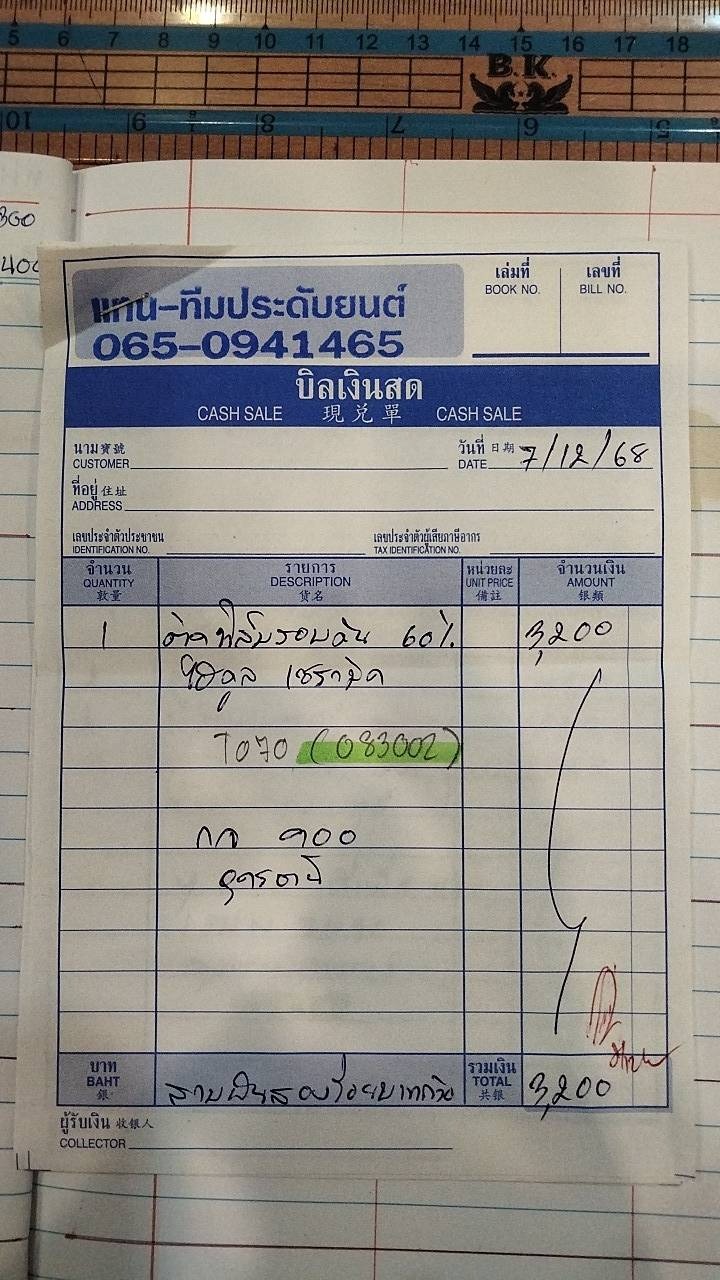 5 6 7 8 9 10 11 12 13 14 15 16 17 18
B.K.
10 9 8 7 6 5
300
400
แทน-ทีมประดับยนต์
065-0941465
เล่มที่ เลขที่
BOOK NO. BILL NO.
บิลเงินสด
CASH SALE 現兌單 CASH SALE
นาม寶號
CUSTOMER
วันที่ 日期
DATE 7/12/68
ที่อยู่ 住址
ADDRESS
เลขประจำตัวประชาชน เลขประจำตัวผู้เสียภาษีอากร
IDENTIFICATION NO. TAX IDENTIFICATION NO.
จำนวน รายการ หน่วยละ จำนวนเงิน
QUANTITY DESCRIPTION UNIT PRICE AMOUNT
數量 貨名 備註 银類
1 ติดฟิล์มรอบคัน 60% 3,200
เซรามิค
TO70 (083002)
กจ ๑00
อุดรธานี
บาท รวมเงิน
BAHT สามพันสองร้อยบาทถ้วน TOTAL 3,200
銀 共银
ผู้รับเงิน 收银人
COLLECTOR